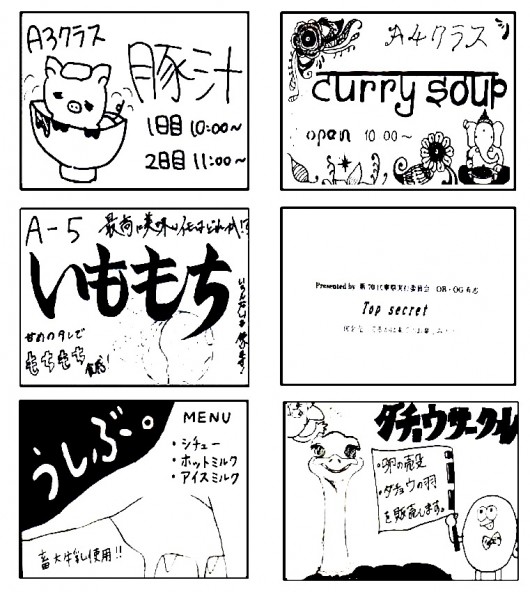 A3クラス
豚汁
1日目 10:00~
2日目 11:00~
A4クラス
curry soup
open 10:00~
A-5
いももち
甘めのタレで
もちもち
Presented by 第70代畜祭実行委員会 OB・OG有志
Top secret
うしぶ。
MENU
・シチュー
・ホットミルク
・アイスミルク
畜大牛乳使用!!
ダチョウサークル
・卵の殻
・ダチョウの羽
を販売します。